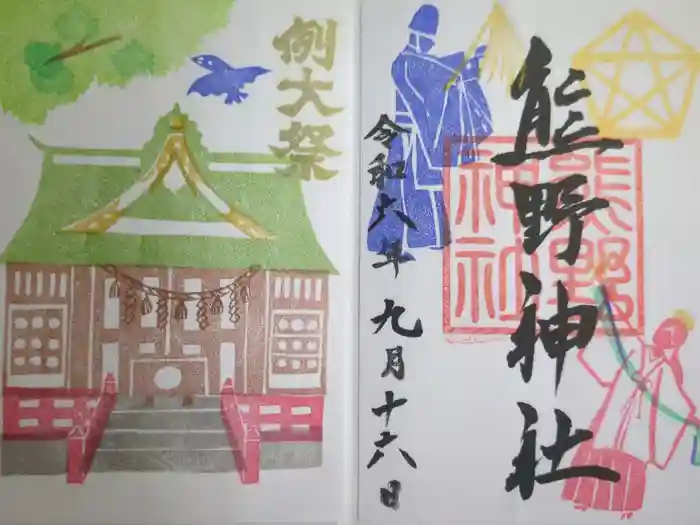 例大祭
熊野神社
熊野
神社
令和六年九月十六日